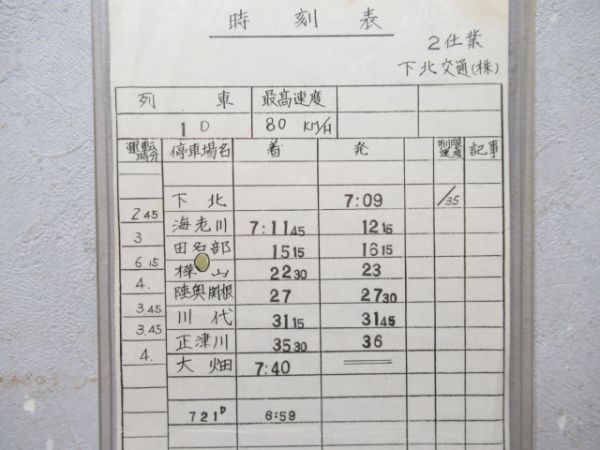 時刻表
2仕業
下北交通(株)
列車 最高速度
1D 80 KM/H
運転時分 停車場名 着 発 制限速度 記事
下北 7:09 /35
2 45
海老川 7:11 45 12 15
3
田名部 15 15 16 15
6 15
樺山 22 30 23
4.
陸奥関根 27 27 30
3.45
川代 31 15 31 45
3.45
正津川 35 30 36
4.
大畑 7:40
721D 6:59